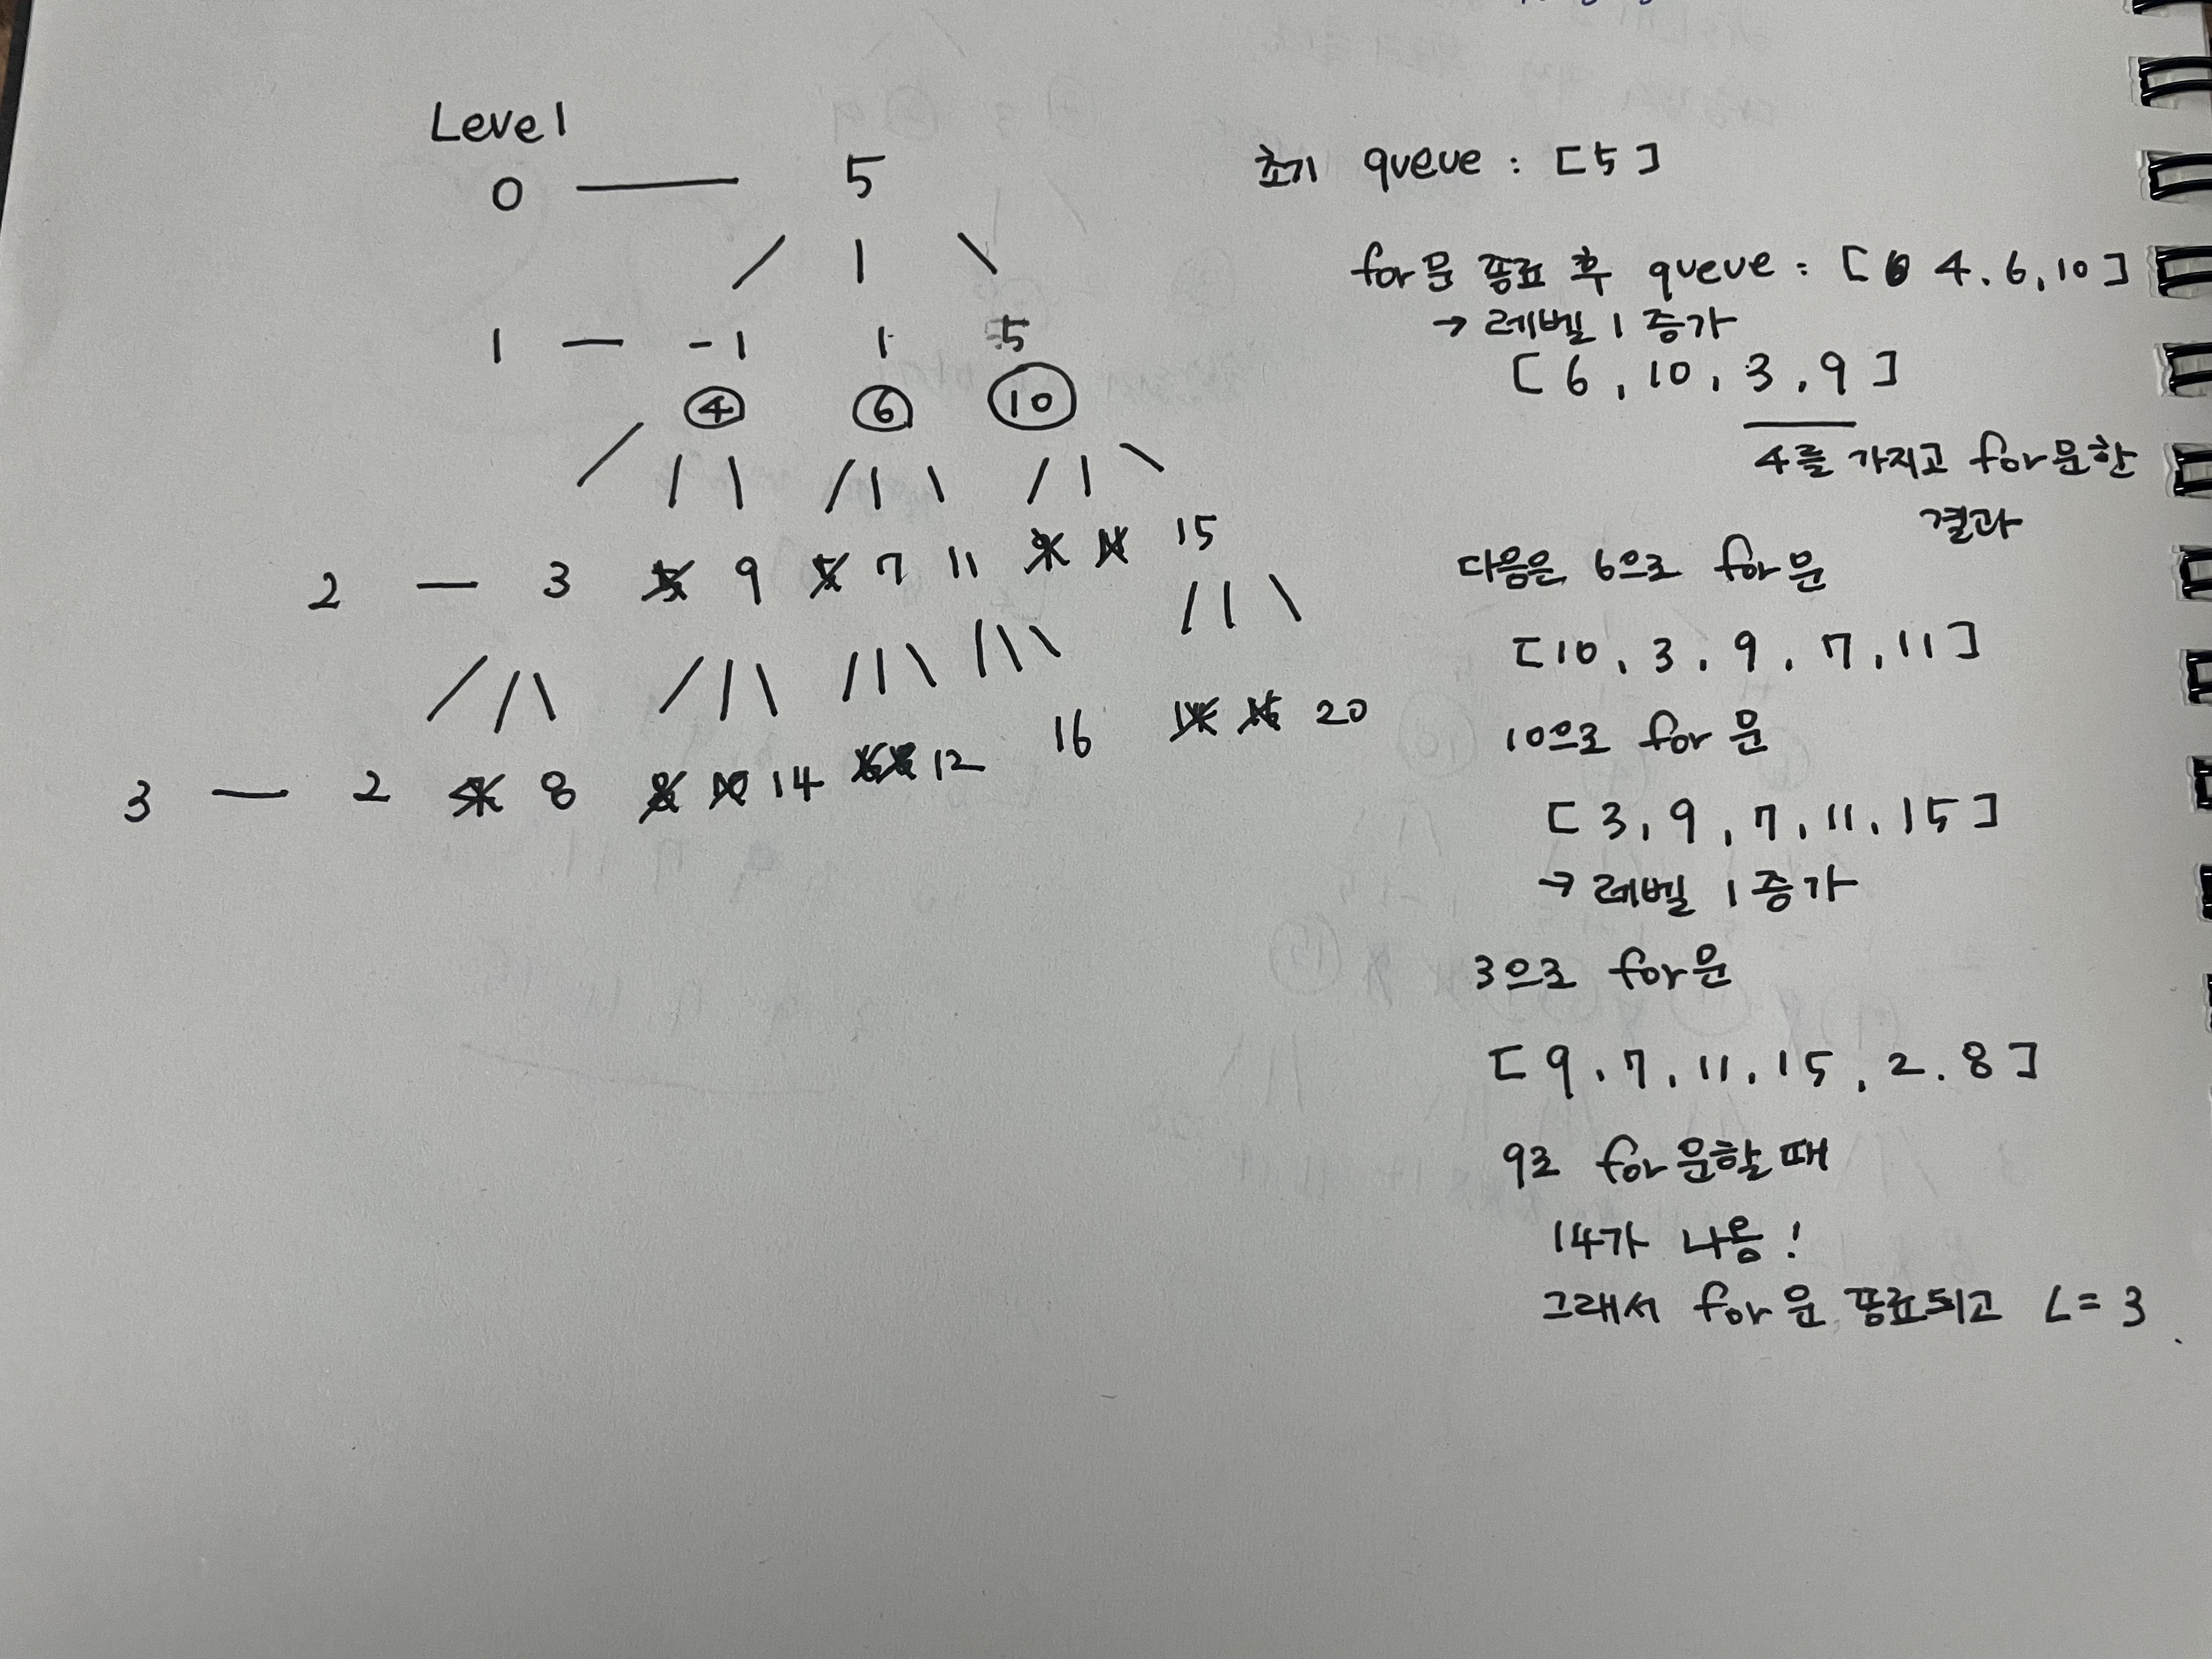 Level
0 — 5
1 — -1 1 5
4 6 10
2 — 3 5 9 5 7 11 9 11 15
3 — 2 4 8 8 10 14 12 16 20
초기 queue : [5]
for문 종료 후 queue : [ 4. 6, 10]
→ 레벨 1 증가
[6, 10, 3, 9]
4를 가지고 for문한
결과
다음은 6으로 for문
[10, 3, 9, 7, 11]
10으로 for문
[3, 9, 7, 11, 15]
→ 레벨 1 증가
3으로 for문
[9, 7, 11, 15, 2. 8]
9로 for문할때
14가 나옴!
그래서 for문 종료되고 L=3.